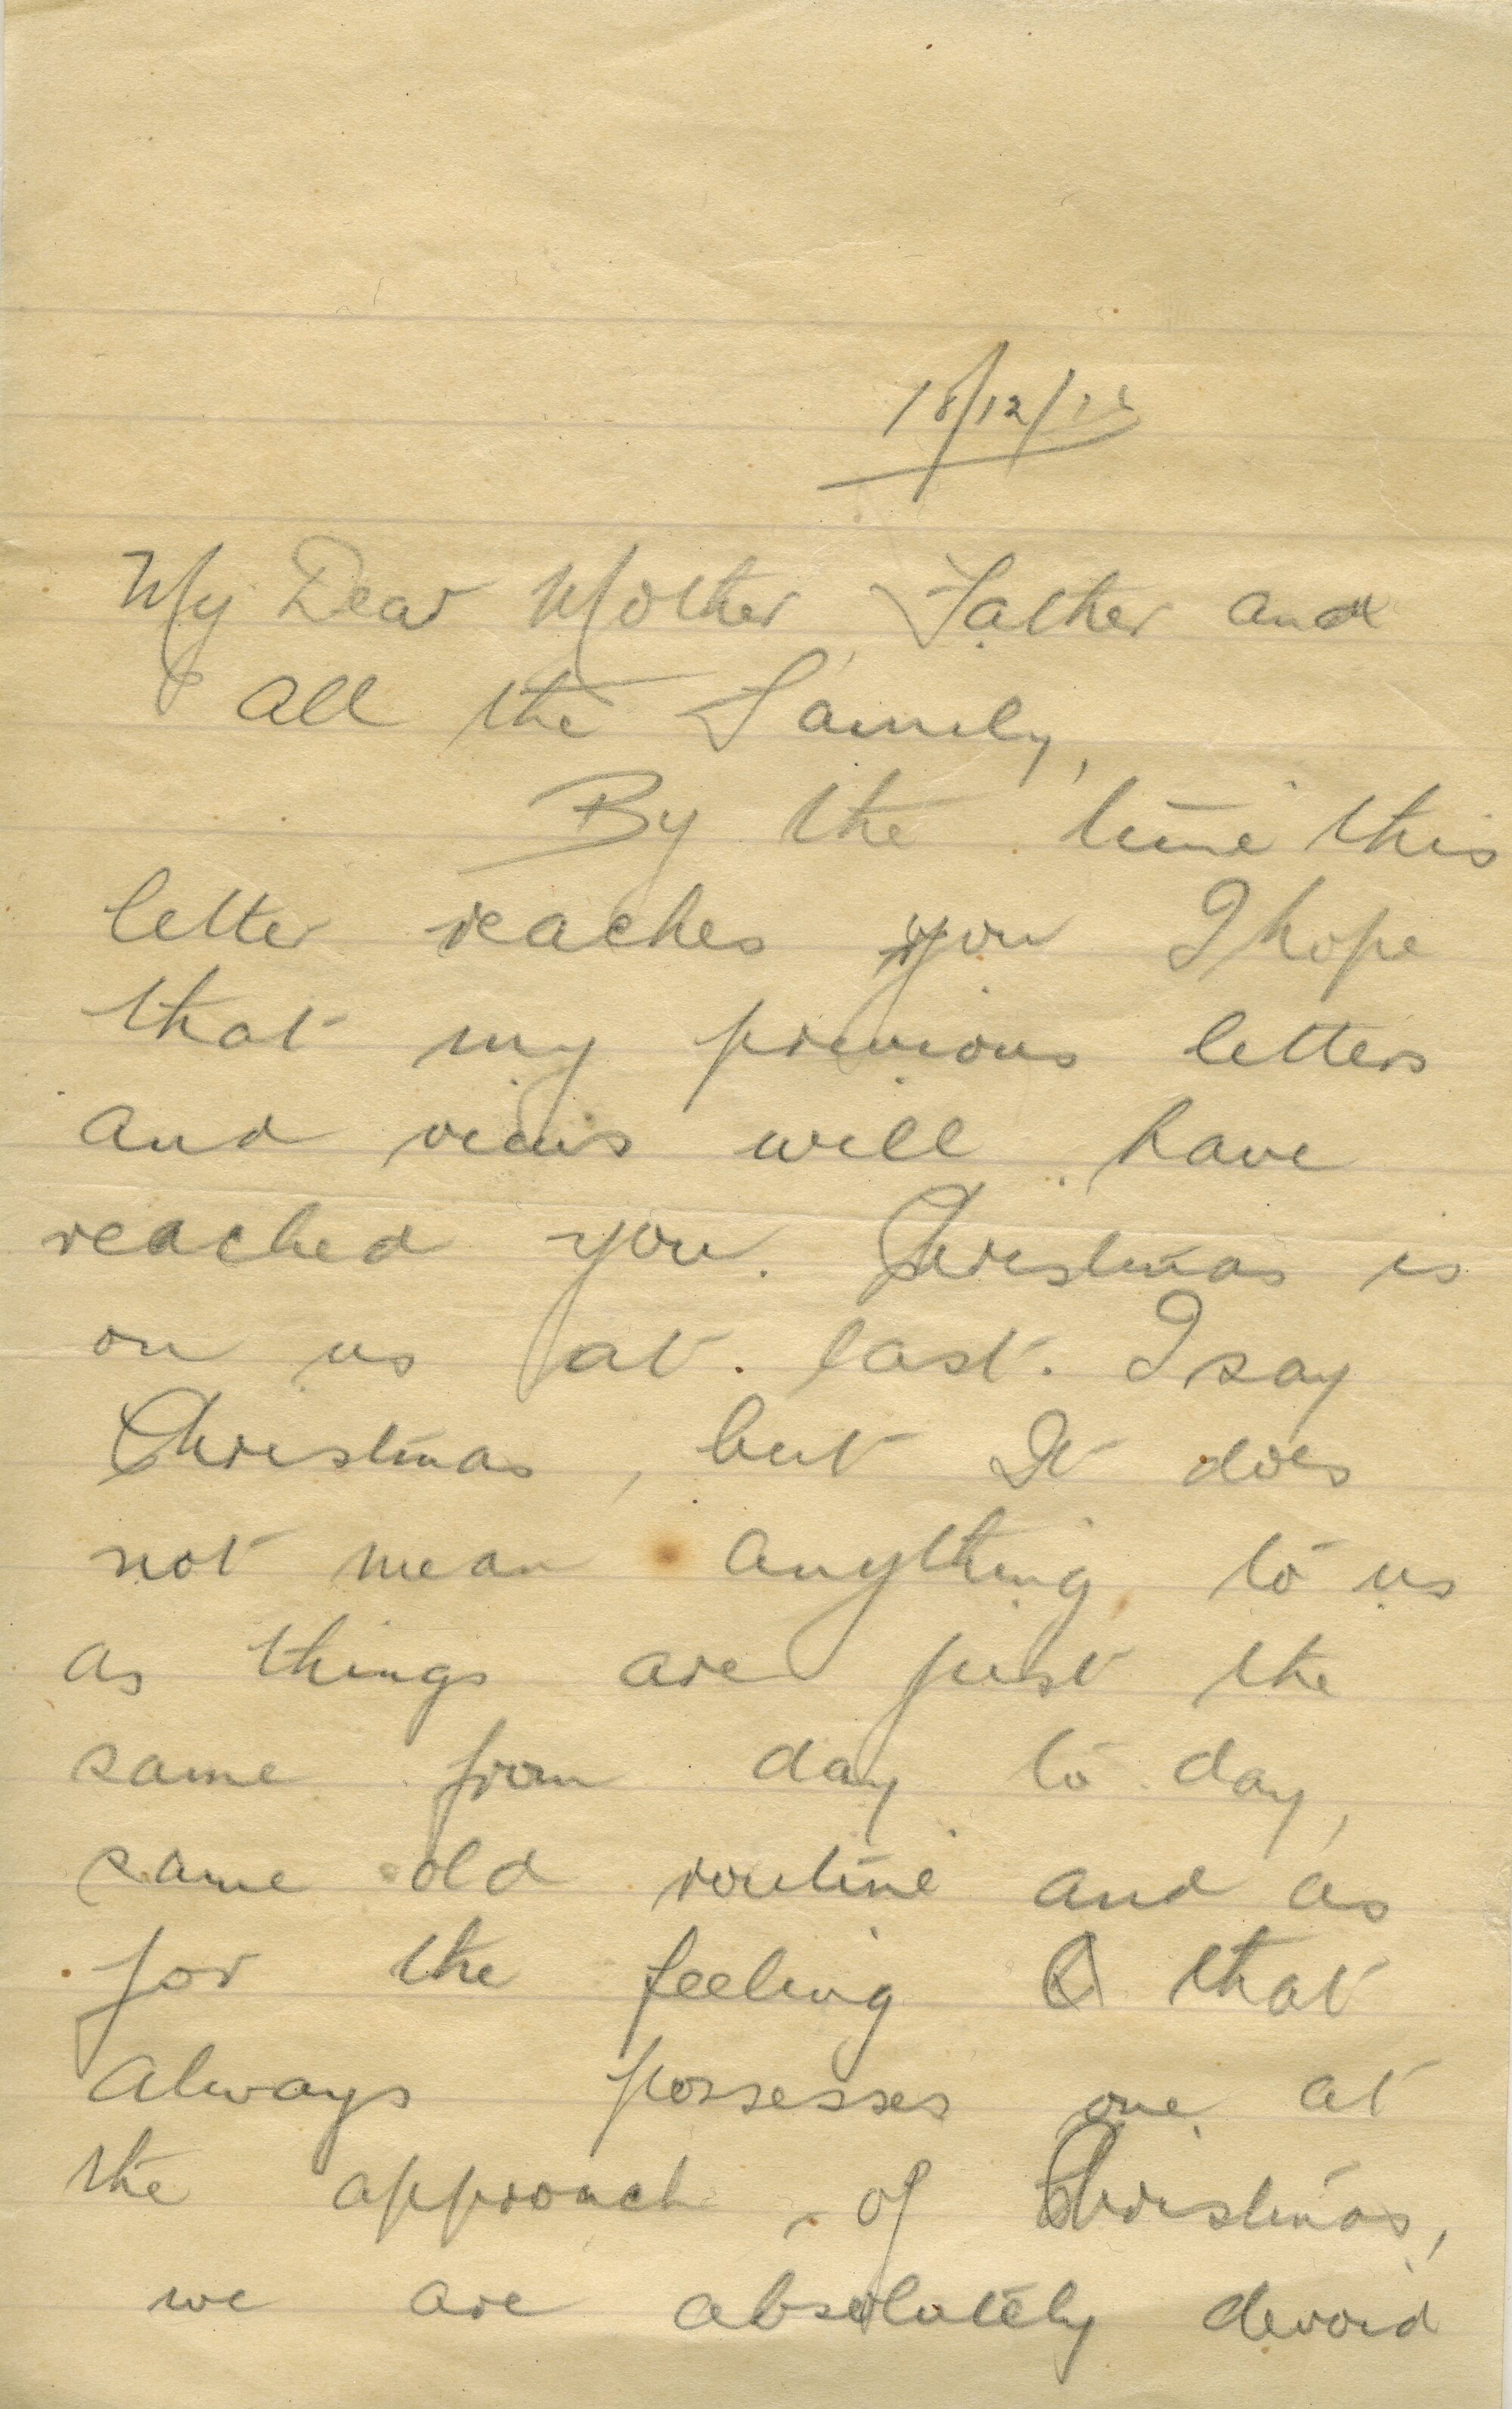 18/12/
My Dear Mother, Father and
all the Family,
By the time this
letter reaches you I hope
that my previous letters
and views will have
reached you. Christmas is
on us at last. I say
Christmas, but It does
not mean anything to us
as things are just the
same from day to day,
same old routine and as
for the feeling that
always possesses one at
the approach of Christmas,
we are absolutely devoid